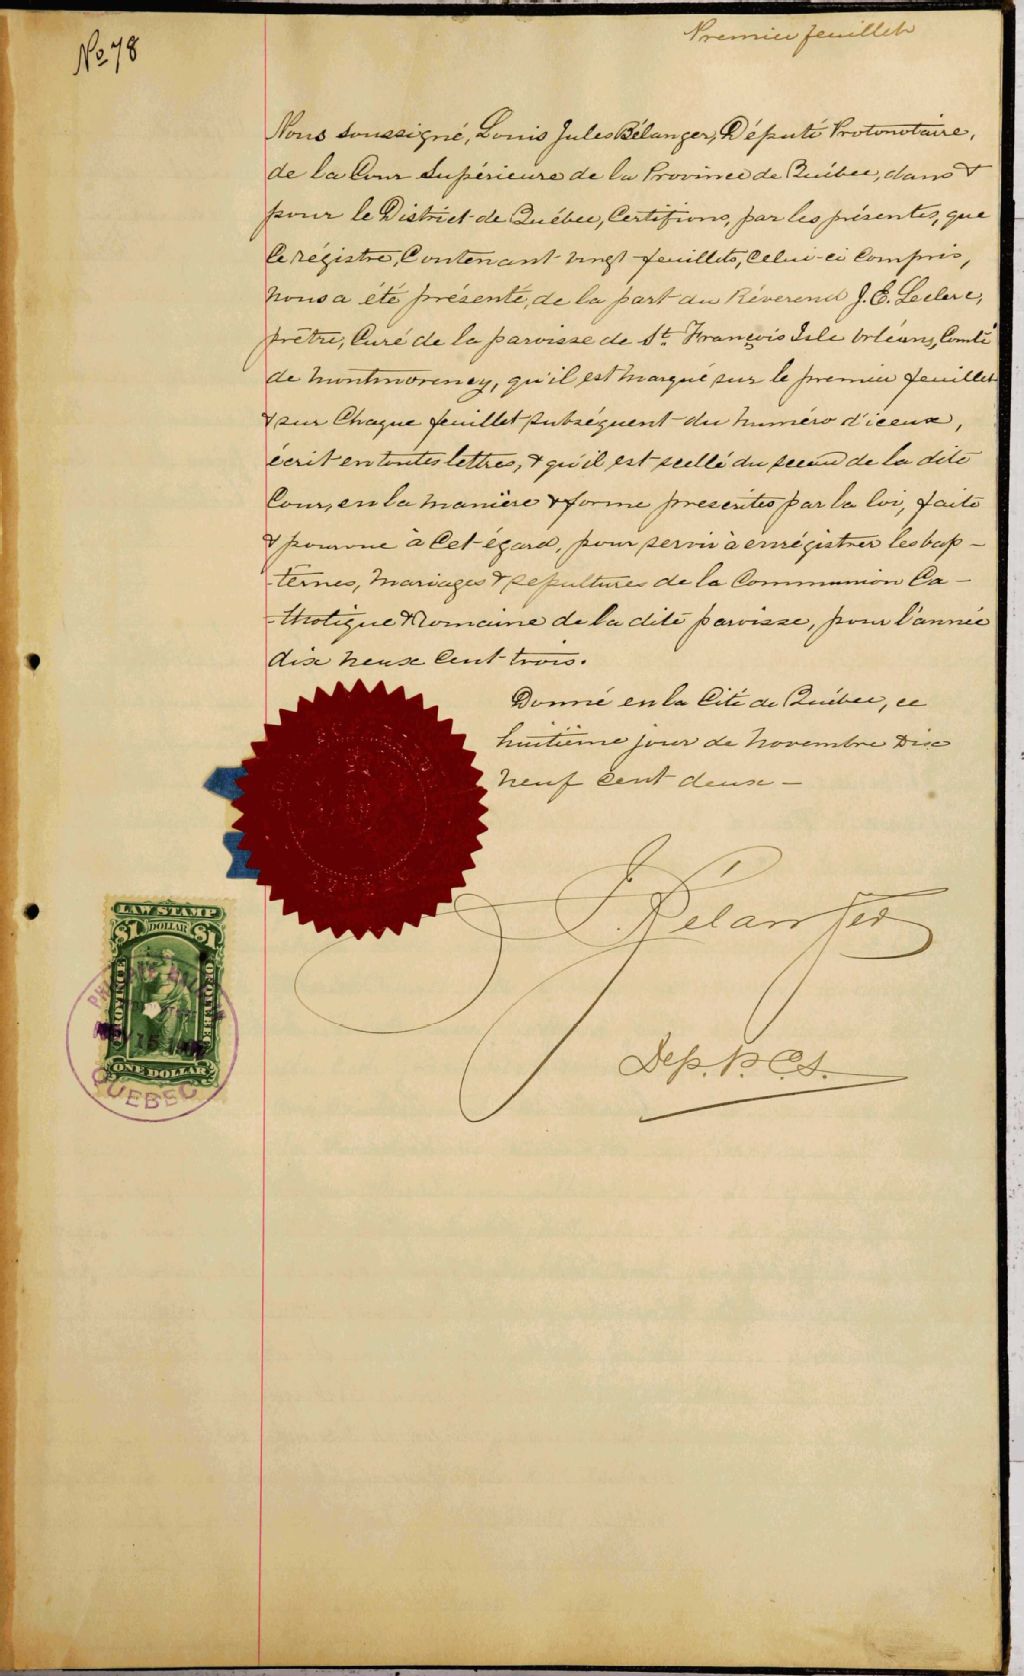 No 78
Premier feuillet
Nous soussigné, Louis Jules Bélanger, Député Protonotaire,
de la Cour Supérieure de la Province de Québec, dans &
pour le District de Québec, Certifions, par les présentes, que
Ce régistre, Contenant vingt feuillets, Celui-ci Compris,
nous a été présenté, de la part du Réverend J. E. Leclerc,
prêtre, Curé de la paroisse de St. François Isle Orléans, Comté
de Montmorency, qu'il est marqué sur le premier feuillet
& sur Chaque feuillet subséquent du numéro d'iceux,
écrit en toutes lettres, & qu'il est scellé du sceau de la dite
Cour, en la manière & forme prescrites par la loi, faite
& pourvue à Cet égard, pour servir à enrégistrer les bap-
-têmes, mariages & sepultures de la Communion Ca-
-tholique & Romaine de la dite paroisse, pour l'année
dix neuf Cent trois.
Donné en la Cité de Québec, ce
huitième jour de novembre Dix
neuf cent deux -
J. Belanger
Dep. P. C. S.
LAW STAMP
$1 DOLLAR $1
PROVINCE OF QUEBEC
ONE DOLLAR
NOV 15
QUEBEC